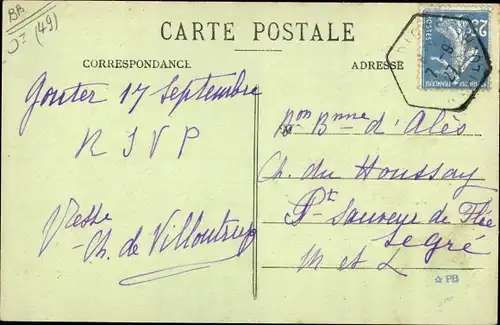 BB
DJ (49)
CARTE POSTALE
CORRESPONDANCE
ADRESSE
Gouter 17 Septembre
RSVP
Vtesse
Ch. de Villoutreys
Bon Bnne d'Alès
Ch. du Houssay
Pt Sauveur de Flée
Segré
M et L
☆PB